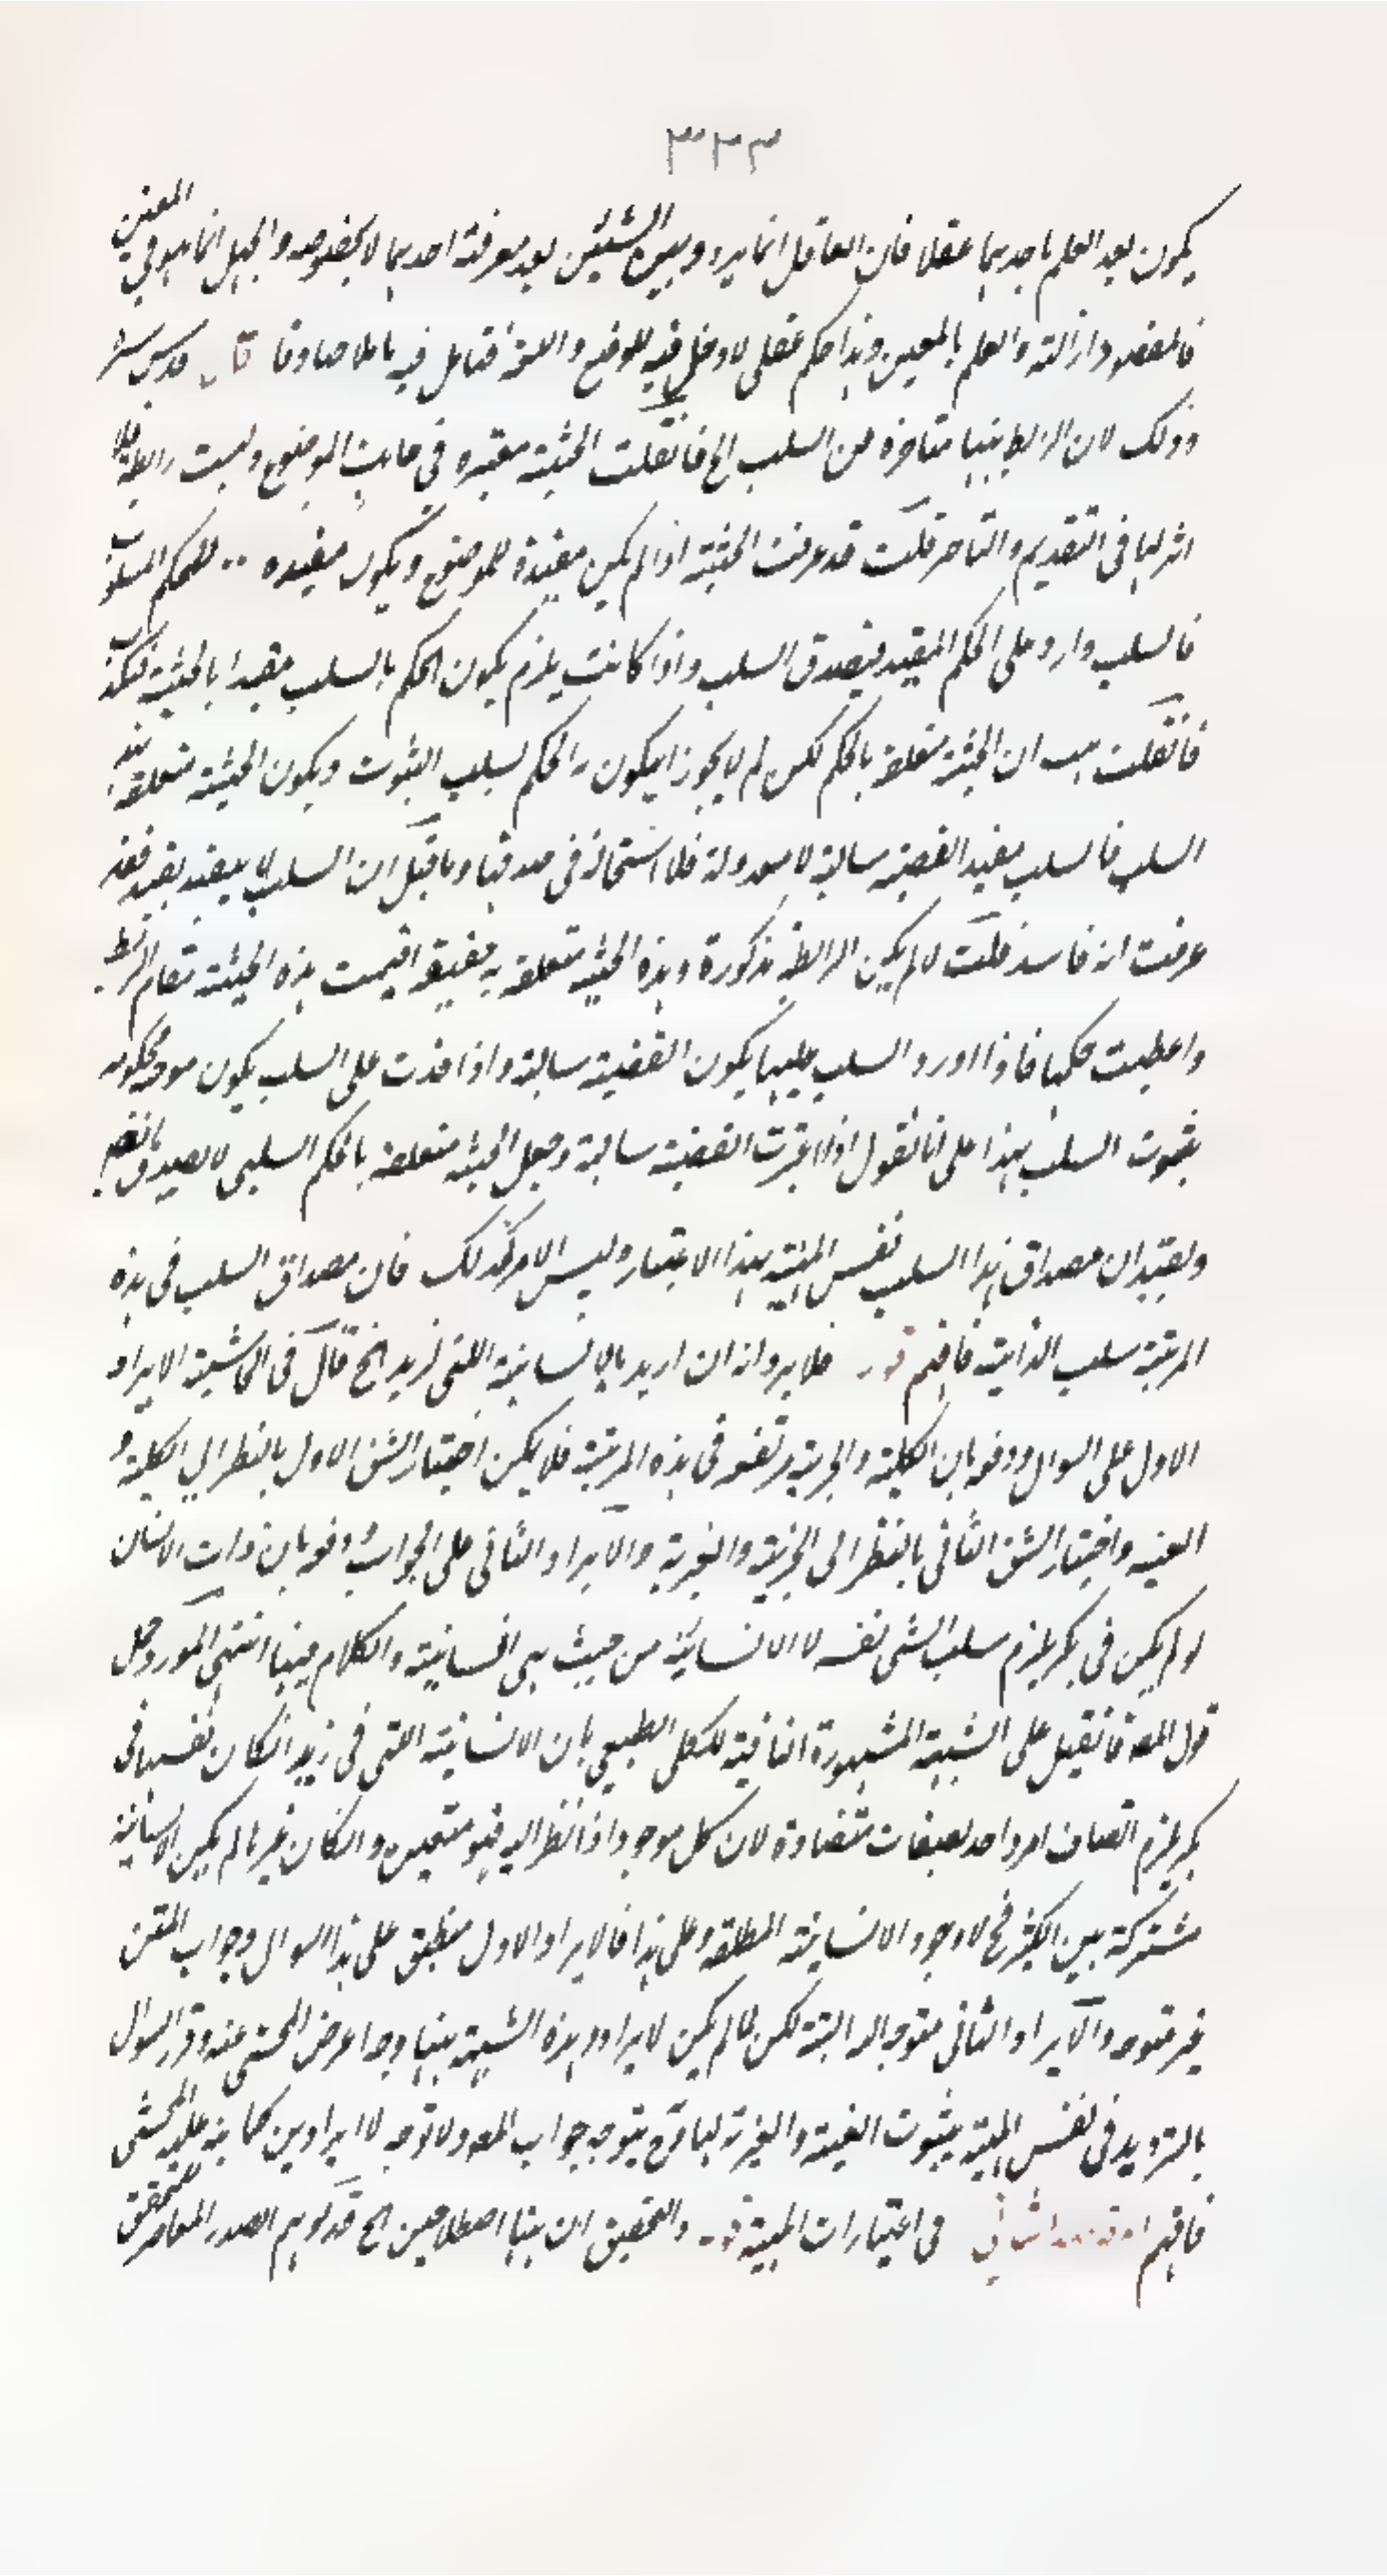 ٣٣٣
يكون بعد العلم باحدهما عقلا فان العاقل انما يردد بين الشيئين بعد معرفة احدهما لا بخصوصه والجهل انما هو في المعنيين
فالمقصود ازالته والعلم بالمعين وهذا حكم عقلي لا دخل فيه للوضع واللغة فتامل فيه تاملا صادقا قال قدس سره
وذلك لان الرابط بينهما متاخرة من السلب الخ فانقلت الحيثية معتبرة في جانب الموضوع وليست رابطة فلا
اثر لها في التقديم والتاخر قلت قد عرفت الحيثية اذا لم يكن مقيدة للموضوع ويكون مقيده للحكم المسلوب
فالسلب وارد على الحكم المقيد فيصدق السلب واذا كانت يلزم يكون الحكم بالسلب مقيدا بالحيثية فيكذب
فانقلت هب ان الحيثية متعلقة بالحكم لكن لم لا يجوز ان يكون الحكم لسلب الثبوت ويكون الحيثية متعلقة
السلب فالسلب مقيد القضية سالبة لا معدولة فلا استحالة في صدقها وما قيل ان السلب لا يتقيد بقيد فقد
عرفت انه فاسد قلت لما لم يكن الرابطة مذكورة وهذه الحيثية متعلقة به حقيقة اقيمت هذه الحيثية مقام الرابط
واعطيت حكمها فاذا اورد السلب عليها يكون القضية سالبة واذا قدمت على السلب يكون موجبة محكومه
بثبوت السلب هذا على انا نقول اذا اعتبرت القضية سالبة وجعل الحيثية متعلقة بالحكم السلبي لا يصدق
ويعتبر ان مصداق هذا السلب نفس المهية بهذا الاعتبار وليس الامر كذلك فان مصداق السلب في هذه
المرتبة سلب الذاتية فافهم قوله فلا يرد انه ان اريد بالانسانية اللتي لزيد الخ قال في الحاشية الايراد
الاول على السوال ودفع بان الكلية والجزئية ترتفع في هذه المرتبة فلا يمكن اختيار الشق الاول بالنظر الى الكلية و
العينية واختيار الشق الثاني بالنظر الى الجزئية والغيرية والايراد الثاني على الجواب ودفع بان ذات الانسان
لو لم يكن في بكر يلزم سلب الشي نفسه لا الانسانية من حيث هي انسانية والكلام فيها انتهى المورد حمل
قول المصه فانقيل على الشبهة المشهورة النافية للكلي الطبيعي بان الانسانية اللتي في زيد انكان نفسها في
بكر يلزم اتصاف امر واحد بصفات متضادة لان كل موجود اذا نظر اليه فهو متعين وانكان غيرها لم يكن الانسانية
مشتركة بين الكثير فح لا وجود الانسانية المطلقة وعلى هذا فالايراد الاول منطبق على هذا السوال وجواب المتن
غير متوجه والايراد الثاني متوجه البتة لكن لما لم يكن لايراد هذه الشبهة ههنا وجه اعرض المحشي عنه وقرر السوال
بالترديد في نفس المهية بثبوت العينية والغيرية لها وح يتوجه جواب المصه ولا توجه للايرادين كما نبه عليه المحشي
فافهم في اعتبارات المهية قوله والتحقيق ان ههنا اصطلاحين الخ قد توهم الصدر المعاصر للمحقق